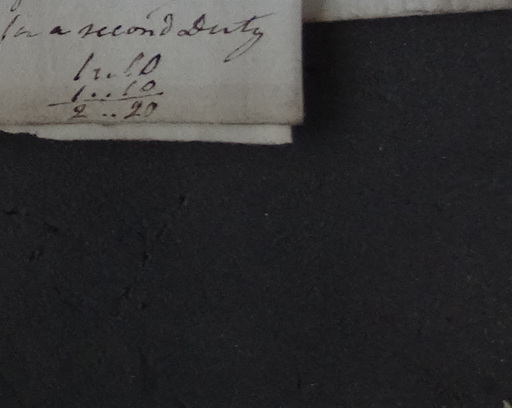 for a second Duty
1..10
1..10
2..20